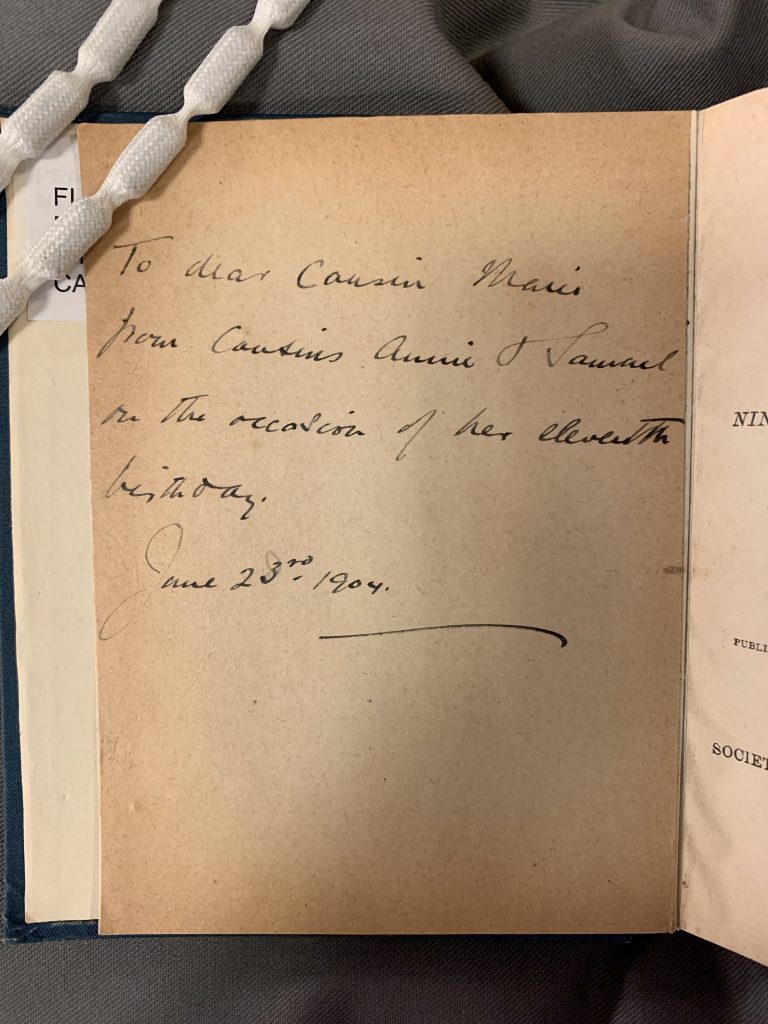 FI
CA
To dear Cousin Marie
from Cousins Annie & Samuel
on the occasion of her eleventh
birthday.
June 23rd. 1904.
NIN
PUBLI
SOCIET